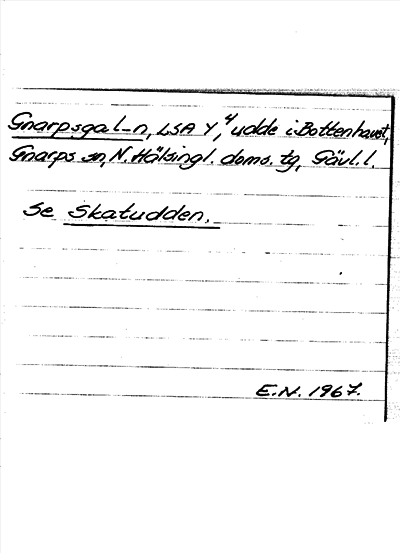 Gnarpsgal-n, LSA Y, 4 udde i Bottenhavet,
Gnarps sn, N. Hälsingl. doms. tg, Gävl. l.
Se Skatudden.
E.N. 1967.